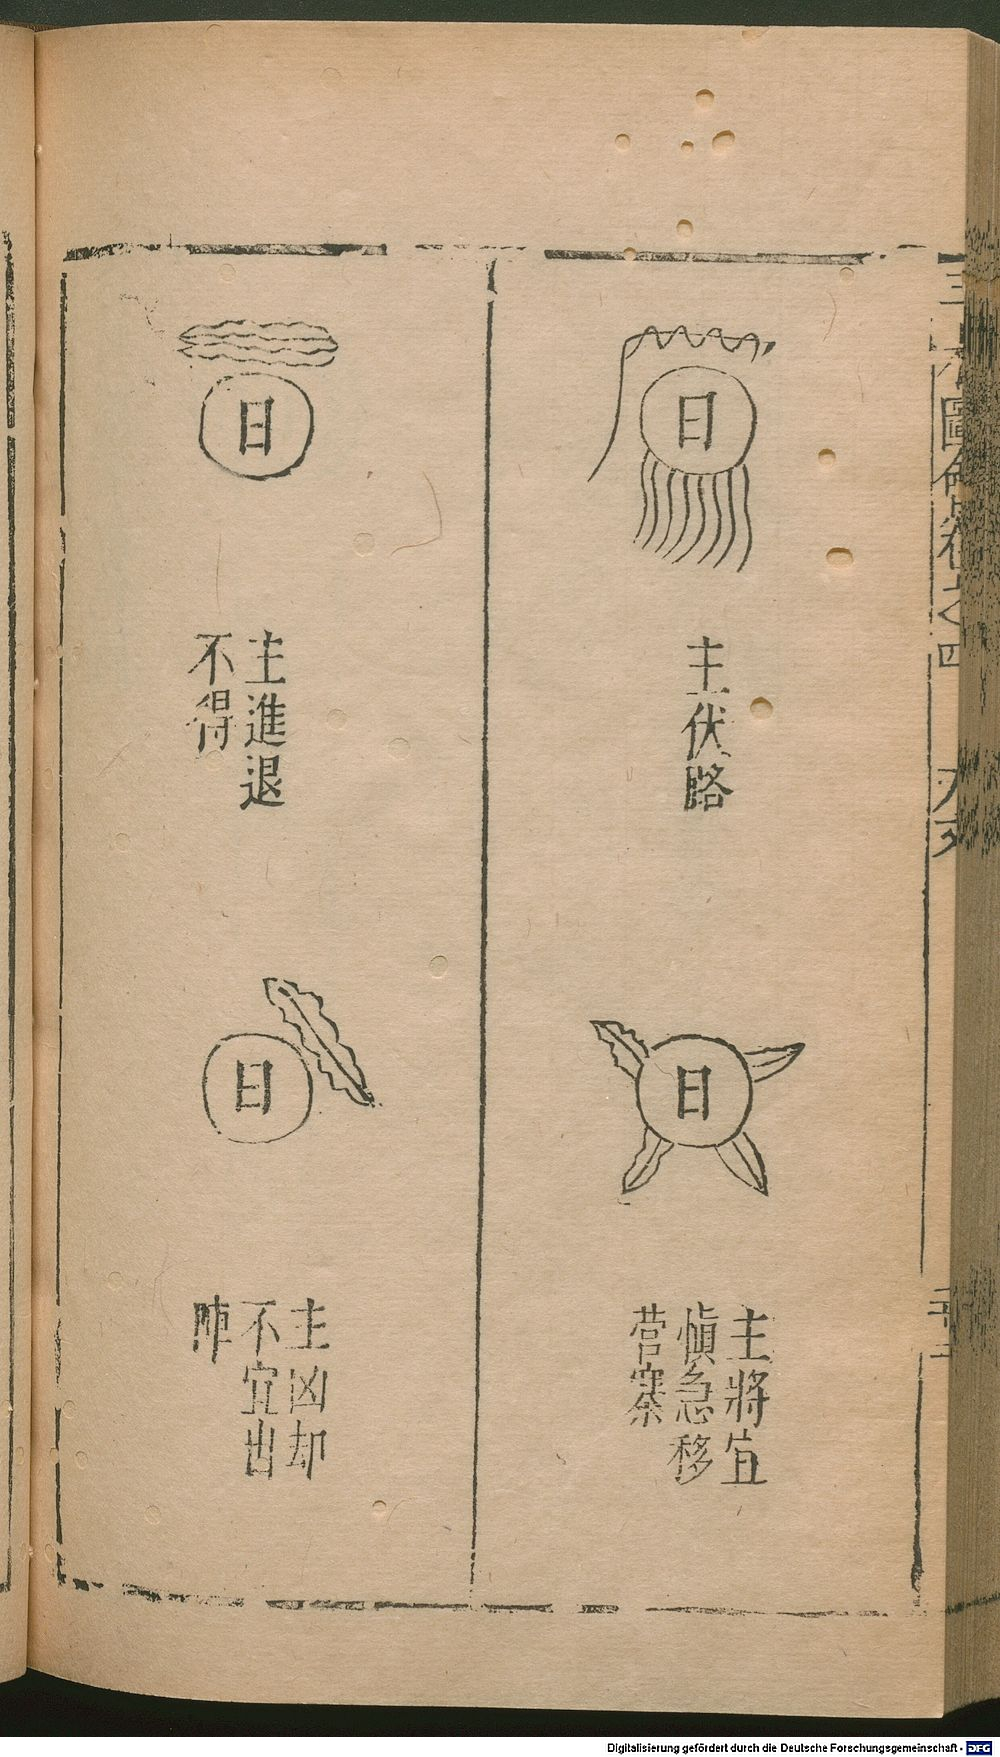 三才圖會卷之四
天文
日
主伏路
日
主將宜
慎急移
营寨
日
主進退
不得
日
主凶却
不宜出
陣
Digitalisierung gefördert durch die Deutsche Forschungsgemeinschaft - DFG